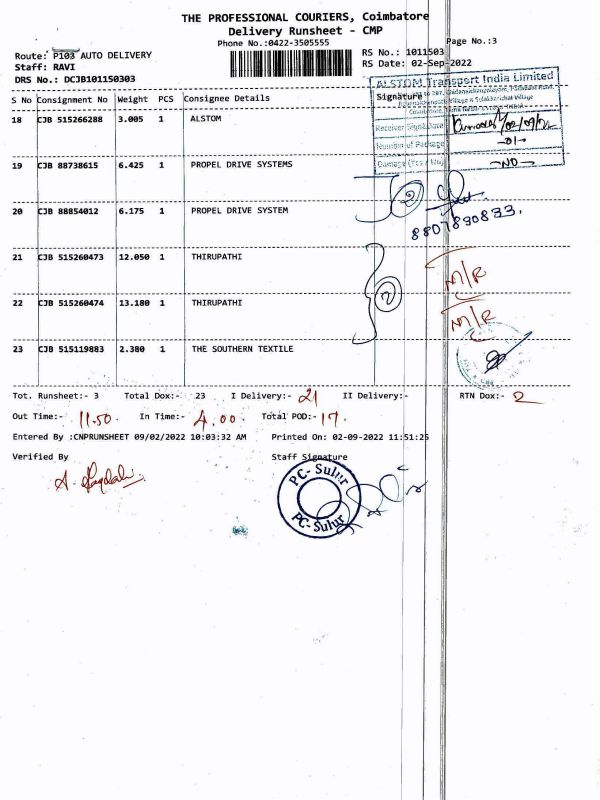 THE PROFESSIONAL COURIERS, Coimbatore
Delivery Runsheet - CMP
Phone No.:0422-3505555
Page No.:3
Route: P103 AUTO DELIVERY
RS No.: 1011503
Staff: RAVI
RS Date: 02-Sep-2022
DRS No.: DCJB101150303
ALSTOM Transport India Limited
S No Consignment No Weight PCS Consignee Details Signature
18 CJB 515266288 3.005 1 ALSTOM
Receiver Sign&Date 02/09/22
Number of Package -01-
Damage (Yes / No) -NO-
19 CJB 88738615 6.425 1 PROPEL DRIVE SYSTEMS
2
20 CJB 88854012 6.175 1 PROPEL DRIVE SYSTEM
8807890833.
21 CJB 515260473 12.050 1 THIRUPATHI
M/R
2
22 CJB 515260474 13.180 1 THIRUPATHI
M/R
23 CJB 515119883 2.380 1 THE SOUTHERN TEXTILE
Tot. Runsheet:- 3 Total Dox:- 23 I Delivery:- 21 II Delivery:- RTN Dox:- 2
Out Time:- 11.50. In Time:- 4.00. Total POD:- 17.
Entered By :CNPRUNSHEET 09/02/2022 10:03:32 AM Printed On: 02-09-2022 11:51:25
Verified By Staff Signature
PC- Sulur
PC-Sulur